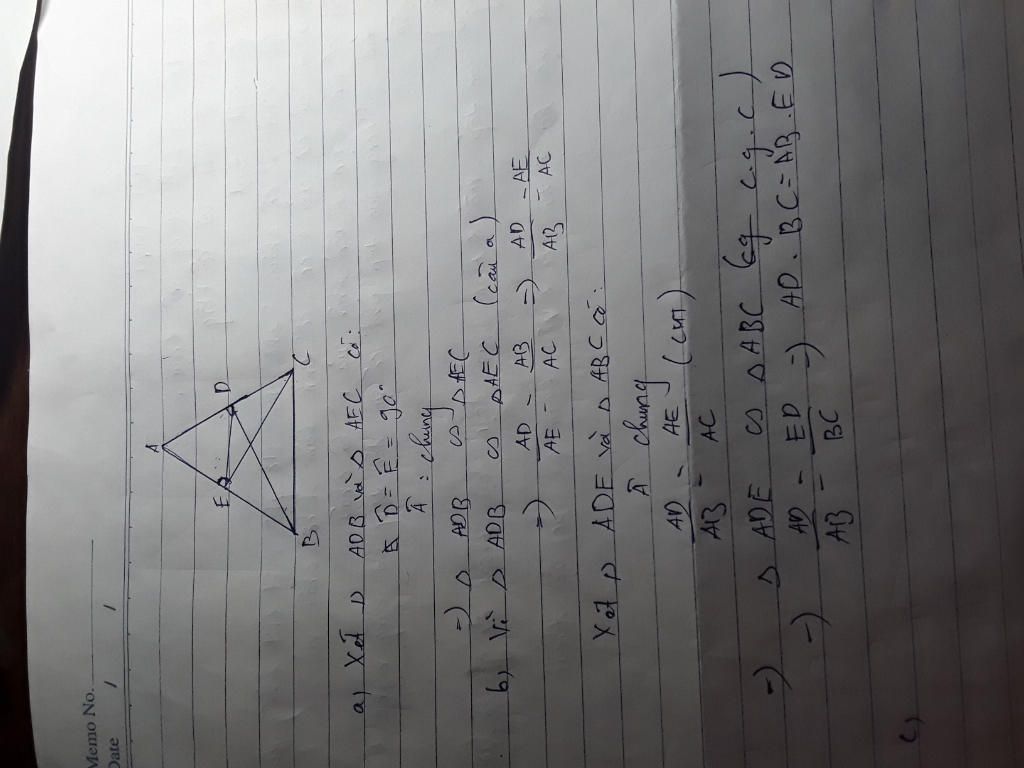 Memo No.
Date / /
A
E D
B C
a) Xét Δ ADB và Δ AEC có:
D̂ = Ê = 90°
Â : chung
=) Δ ADB ∽ Δ AEC
b) Vì Δ ADB ∽ Δ AEC (câu a)
=) AD/AE = AB/AC =) AD/AB = AE/AC
Xét Δ ADE và Δ ABC có:
Â chung
AD/AB = AE/AC (cmt)
=) Δ ADE ∽ Δ ABC (c.g.c)
=) AD/AB = ED/BC =) AD.BC = AB.ED
c)